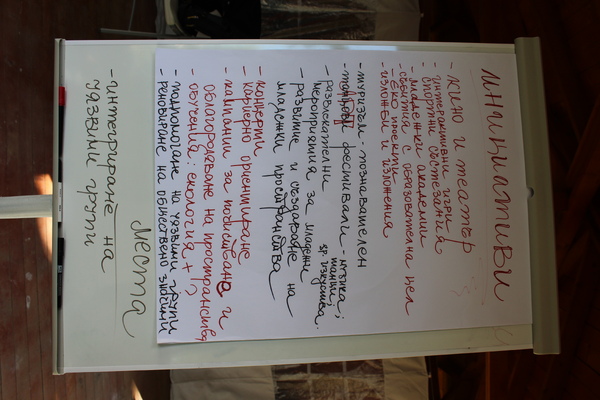 инициативи
- кино и театър
- интерактивни игри
- спортни състезания
- младежки академии
- събития с образователна цел
- еко проекти
- изложби и изложения
- туризъм - познавателен
фестивали - музика;
танци;
изкуства.
развлекателни
мероприятия за младежи
- развитие и създаване на
младежки пространства
- концерти
- кариерно ориентиране
- кампании за почистване и
облагородяване на пространства
- обучения: екология + ?
- подпомагане на уязвими групи
- реновиране на обществено значими
места
- интегриране на
уязвими групи